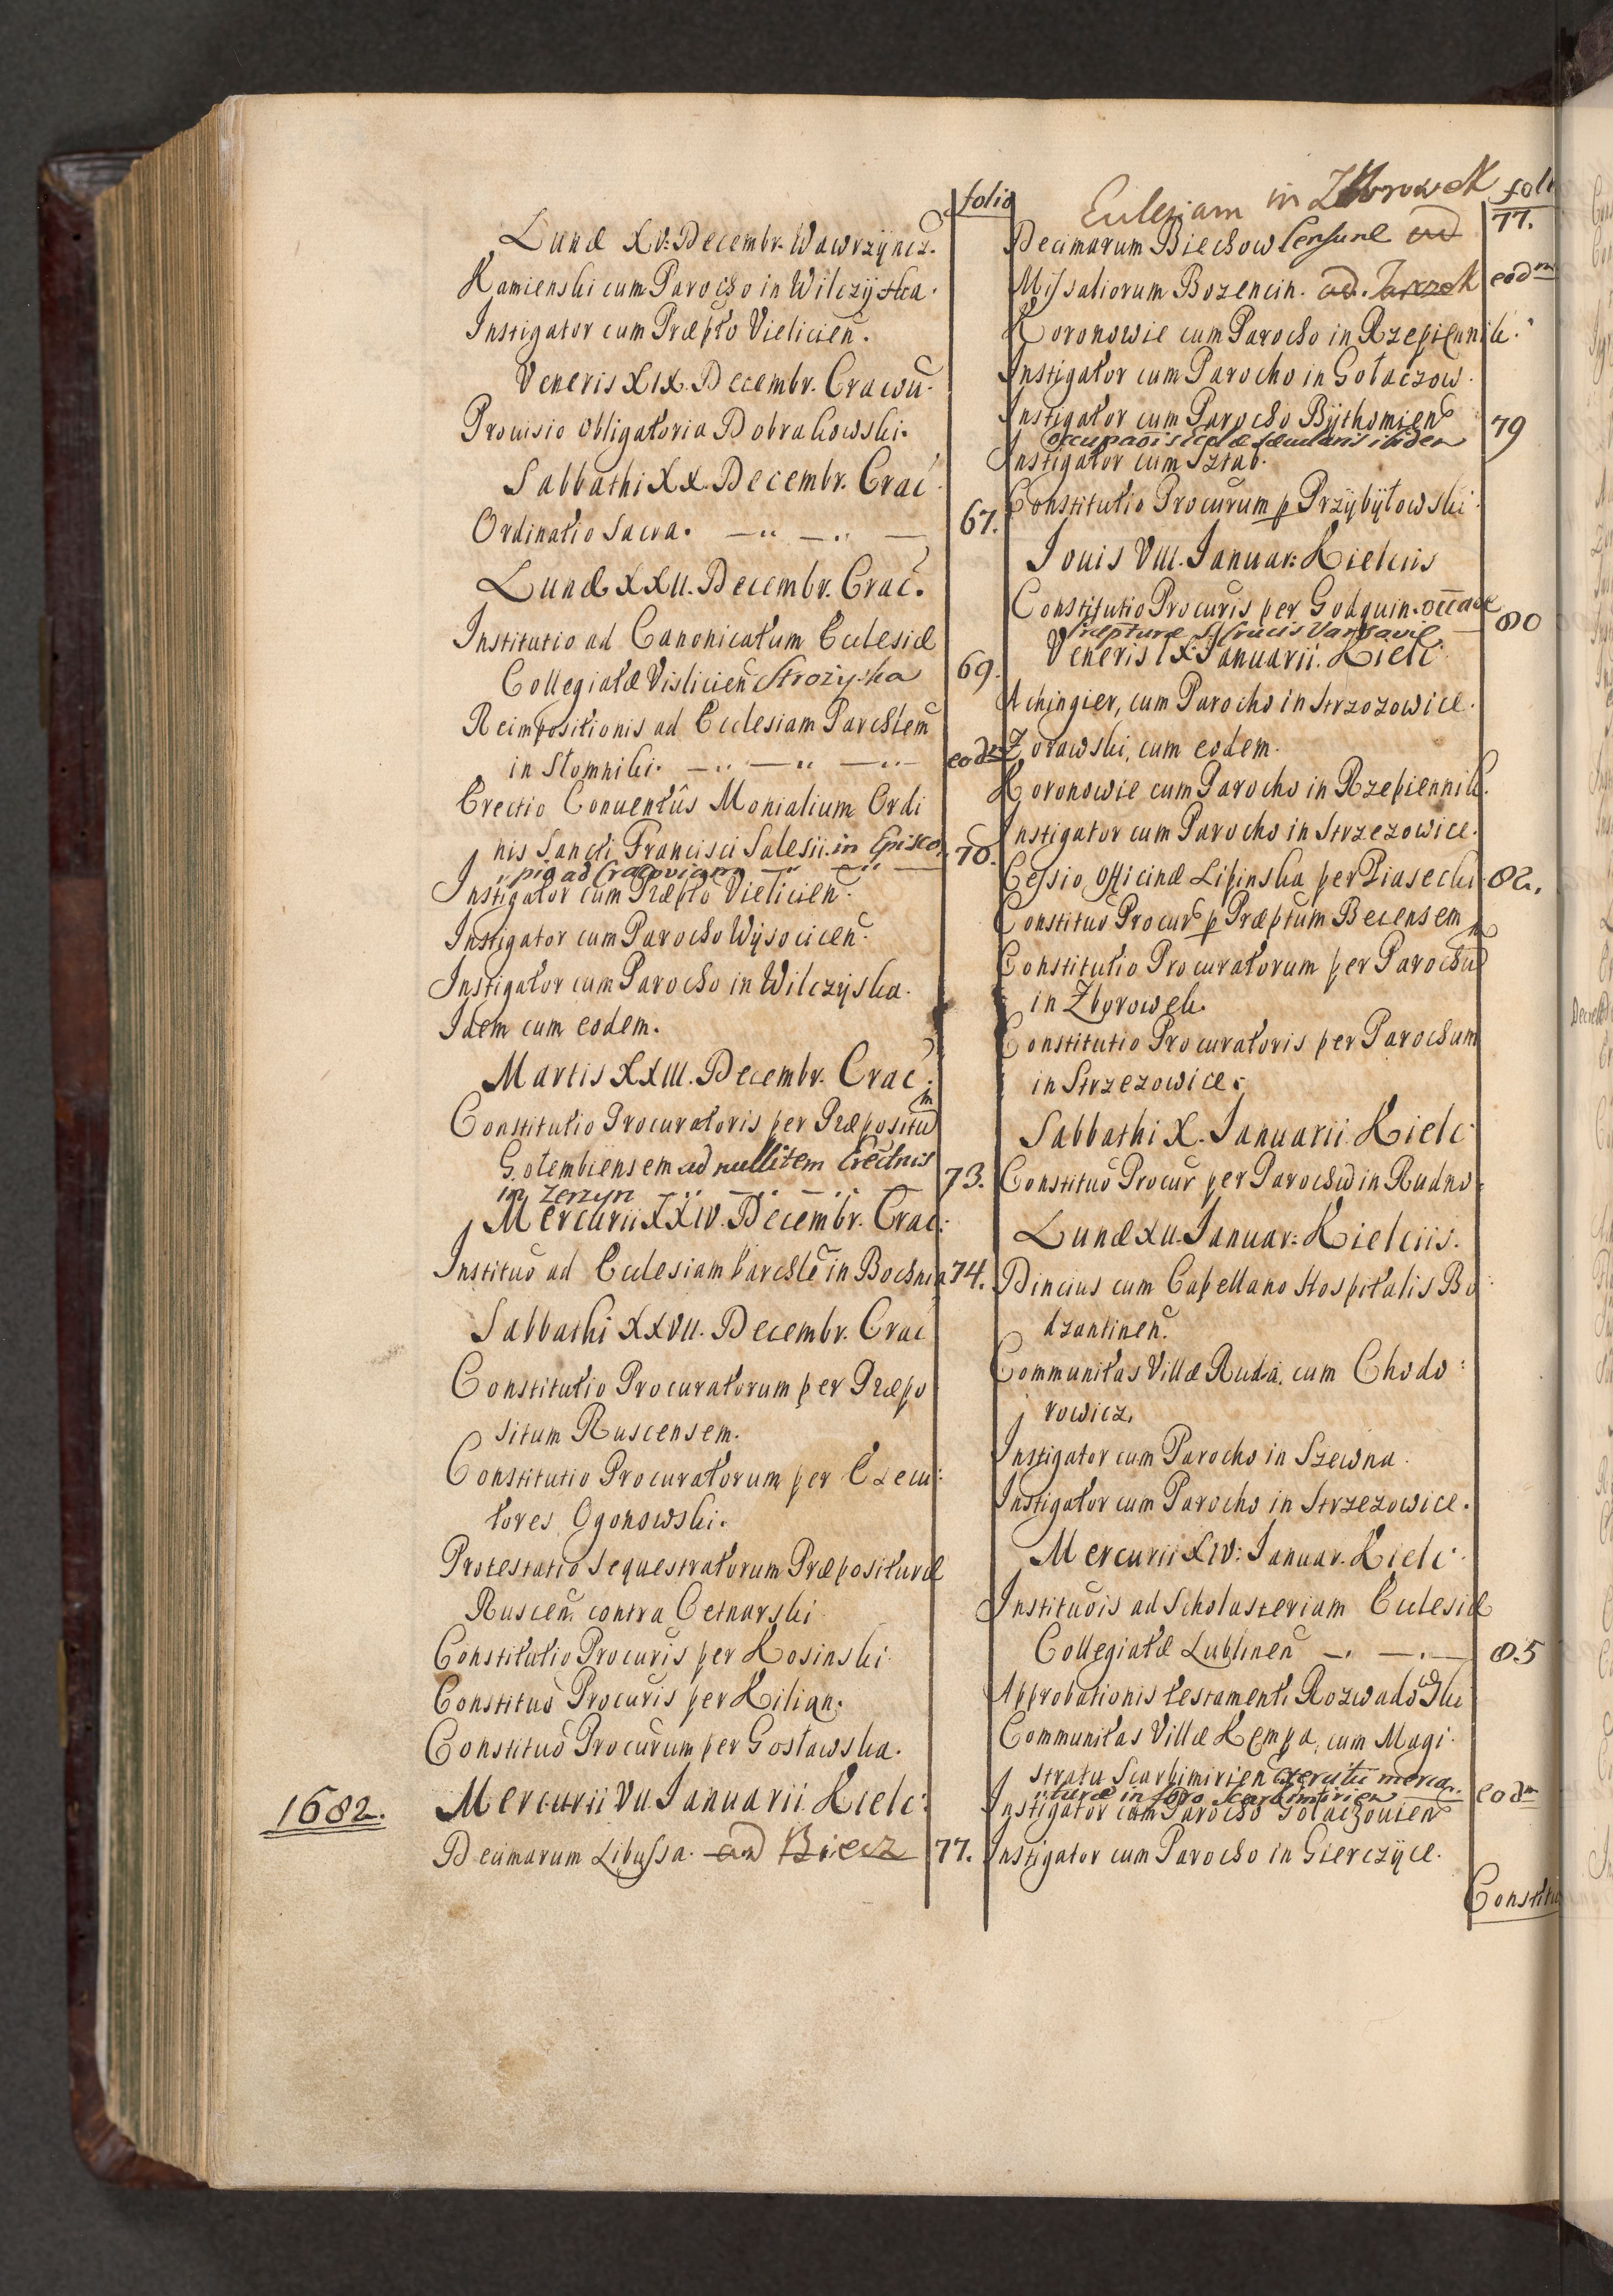 folio
Lunæ XV. Decembr. Wawrzyncz.
Kamienski cum Parocho in Wilczyska.
Instigator cum Præpto Vielicien.
Veneris XIX. Decembr. Cracov.
Provisio obligatoria Dobrakowski.
Sabbathi XX. Decembr. Crac.
Ordinatio Sacra. 67.
Lunæ XXII. Decembr. Crac.
Institutio ad Canonicatum Ecclesiæ
Collegiatæ Vislicien Strozyska 69.
Reimpositionis ad Ecclesiam Parchlem
in Slomniki. eodm
Erectio Conventûs Monialium Ordi
nis Sancti Francisci Salesii. in Episco 70.
pia ad Cracoviam
Instigator cum Præpto Vielicien.
Instigator cum Parocho Wysocicen.
Instigator cum Parocho in Wilczyska.
Idem cum eodem.
Martis XXIII. Decembr. Crac.
Constitutio Procuratoris per Præpositum
Golembiensem ad nullitem Erectnis
in Zerzyn 73.
Mercurii XXIV. Decembr. Crac:
Instituo ad Ecclesiam Parchle in Bochnia 74.
Sabbathi XXVII. Decembr. Crac
Constitutio Procuratorum per Præpo
situm Ruscensem.
Constitutio Procuratorum per Execu:
tores Ogonowski.
Protestatio Sequestratorum Præposituræ
Ruscen. contra Cetnarski
Constitutio Procuris per Kosinski.
Constituo Procuris per Kilian.
Constituo Procurum per Goslawska.
1682.
Mercurii VII Januarii Kielc:
Decimarum Libussa. ad Biecz 77.
Ecclesiam in Zborowek folio
Decimarum Biechow Censure ad 77.
Missaliorum Bozencin. ad. Tarczek eodm
Koronowie cum Parocho in Rzepiennik.
Instigator cum Parocho in Golaczow.
Instigator cum Parocho Bythomien
occupaois ibidem 79
Instigator cum Sztab.
Constitutio Procurum p Przybylowski.
Jouis VIII. Januar: Kielciis
Constitutio Procuris per Godquin. occaoe
Præpturæ S Crucis Varsaviæ 80
Veneris IX. Januarii. Kielc
Achingier, cum Parocho in Strzozowice.
Zorawski, cum eodem.
Koronowie cum Parocho in Rzepiennik.
Instigator cum Parocho in Strzezowice.
Cessio Officinæ Lipinska per Piasecki 82.
Constituo Procur p Præptum Becensem
Constitutio Procuratorum per Parochum
in Zborowek.
Constitutio Procuratoris per Parochum
in Strzezowice.
Sabbathi X. Januarii. Kielc
Constituo Procur per Parochum in Rudno.
Lunæ XII. Januar: Kielciis.
Pincius cum Capellano Hospitalis Bo
dzantinen.
Communitas Villæ Ruda. cum Chodo:
rowicz.
Instigator cum Parocho in Szewna.
Instigator cum Parocho in Strzezowice.
Mercurii XIV: Januar. Kielc.
Instituois ad Scholasteriam Ecclesiæ
Collegiatæ Lublinen 85
Approbationis testamenti Rozwadoski
Communitas Villæ Kempa, cum Magi
stratu Scarbimirien Exercitu merca
turæ in foro Scarbimirien eodm
Instigator cum Parocho Golaczouien
Instigator cum Parocho in Gierczyce.
Constitu